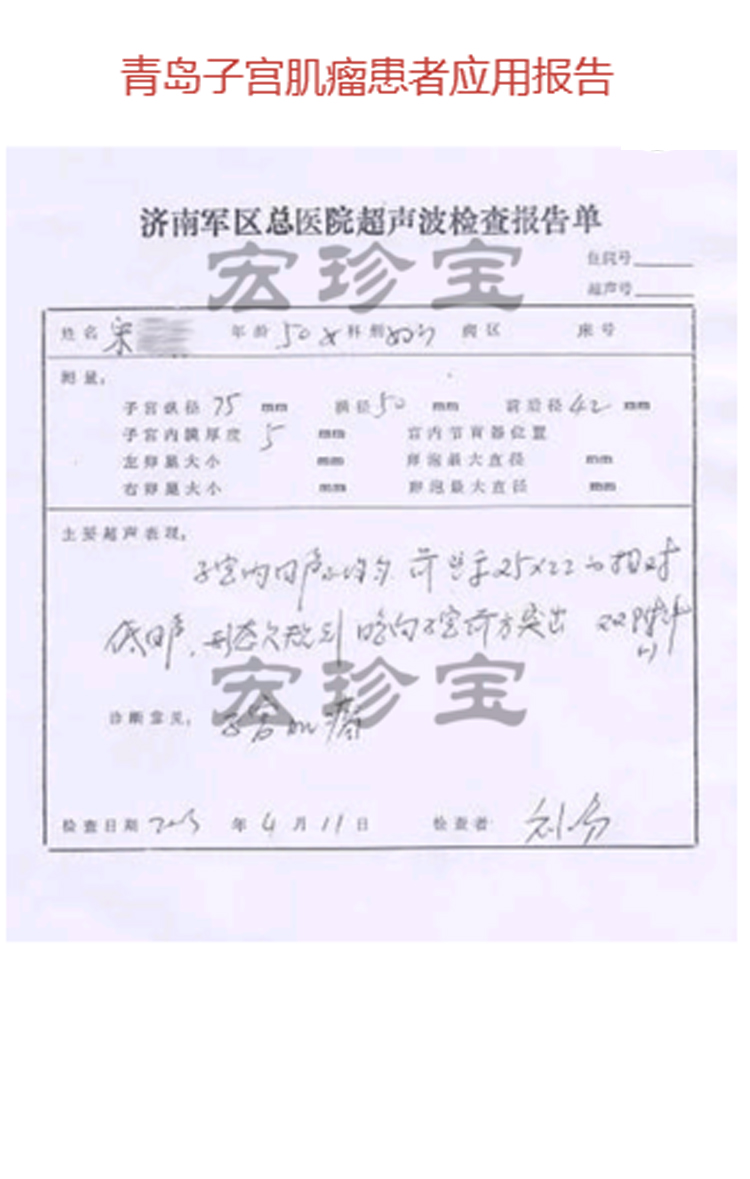 青岛子宫肌瘤患者应用报告
济南军区总医院超声波检查报告单
宏珍宝
住院号
超声号
姓名 宋 年龄 50 科别 妇 病区 床号
测量:
子宫纵径 75 mm 横径 50 mm 前后径 42 mm
子宫内膜厚度 5 mm 宫内节育器位置
左卵巢大小 mm 卵泡最大直径 mm
右卵巢大小 mm 卵泡最大直径 mm
主要超声表现:
子宫内回声不均匀 前壁 25×22 的相对
低回声, 形态欠规则 向子宫前方突出 双附件
(-)
宏珍宝
诊断意见: 子宫肌瘤
检查日期 年 4 月 11 日 检查者